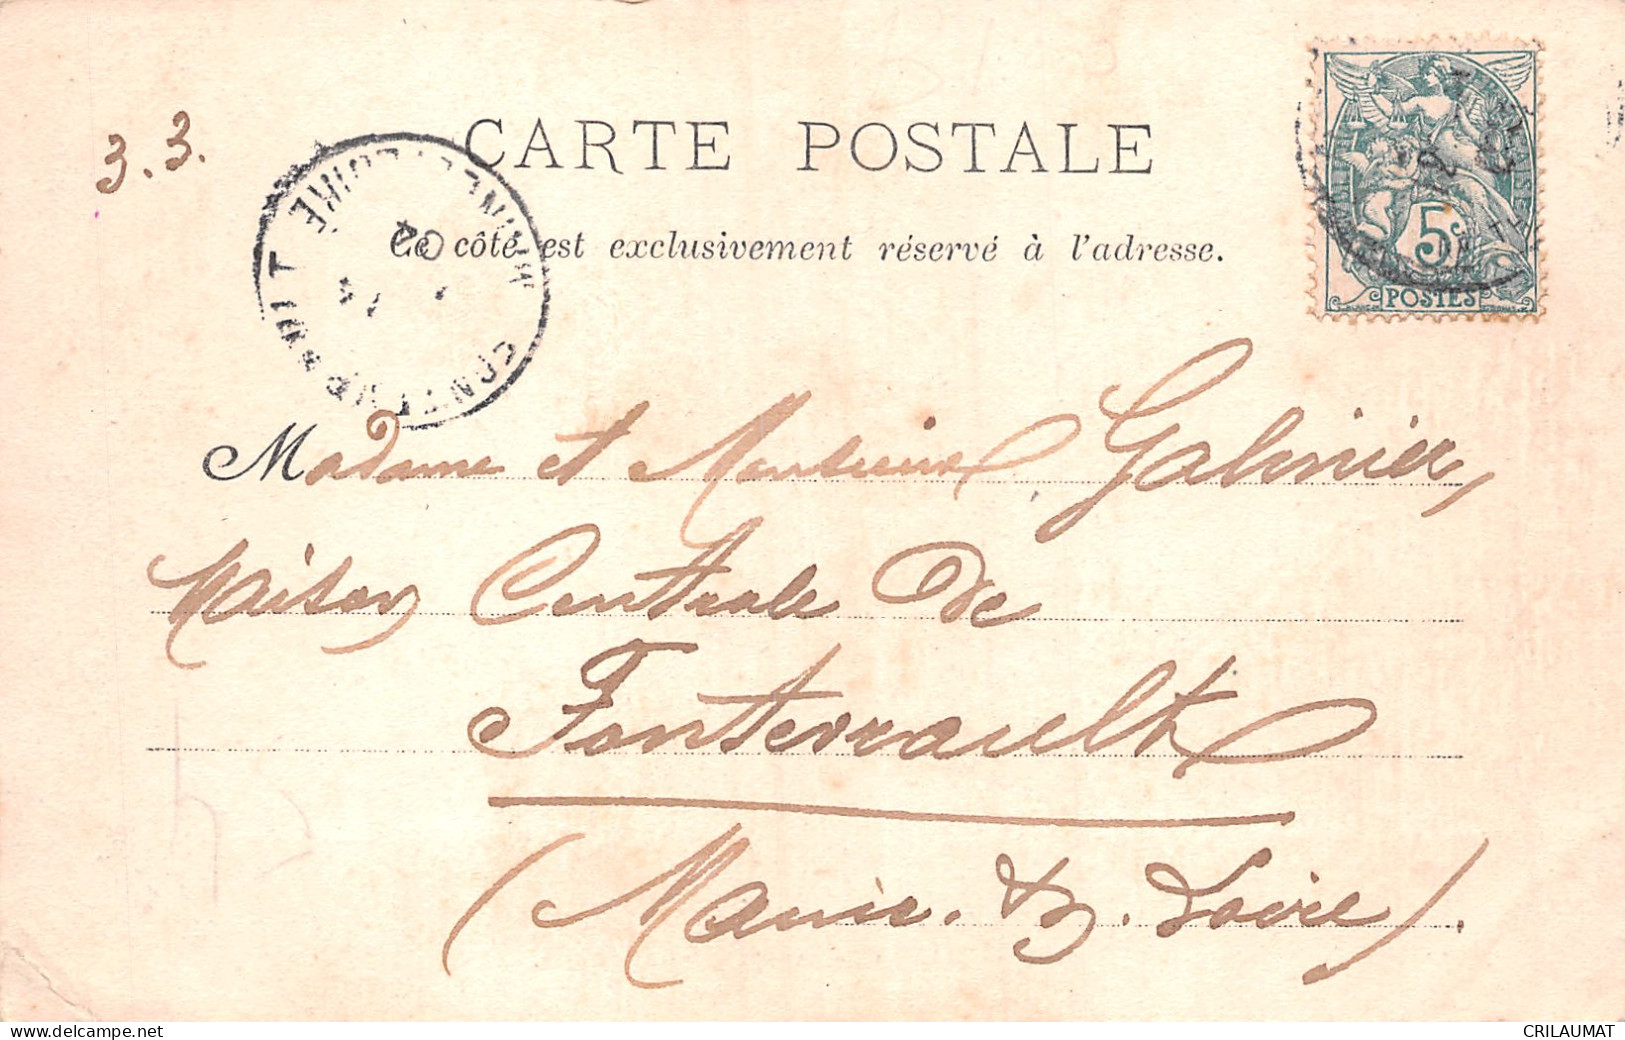 3.3.
CARTE POSTALE
Ce côté est exclusivement réservé à l'adresse.
5
POSTES
MAINE-ET-LOIRE
02
Madame et Monsieur Galinier,
Maison Centrale de
Fontevrault
(Maine. & . Loire).
www.delcampe.net
CRILAUMAT